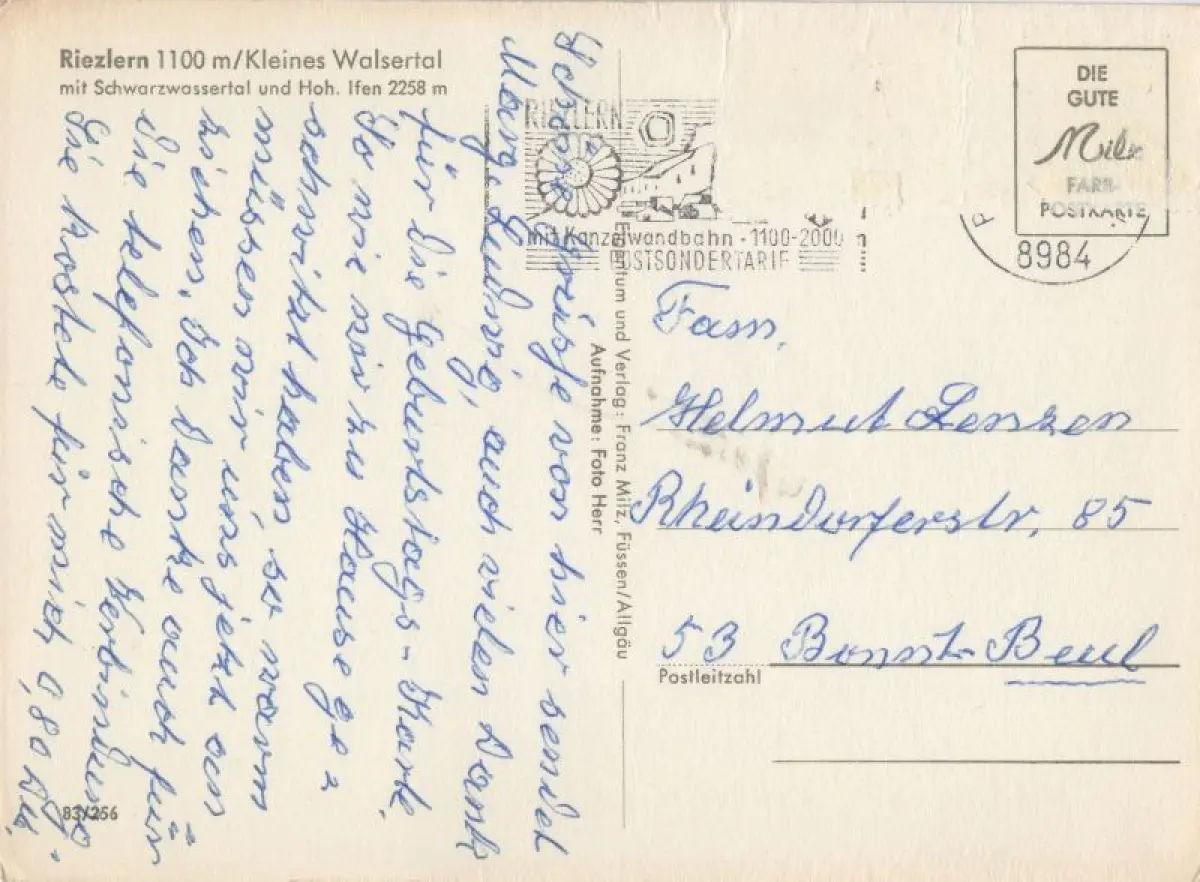 Riezlern 1100 m/Kleines Walsertal
mit Schwarzwassertal und Hoh. Ifen 2258 m
Schöne Grüße von hier sendet
Ludwig, auch vielen Dank
für die Geburtstags-Karte.
So wie wir zu Hause ge=
schwitzt haben, so warm
müssen wir uns jetzt an
ziehen. Ich danke auch für
die telefonische Verbindung
Sie kostete für mich 0,80 DM.
83/256
Eigentum und Verlag: Franz Milz, Füssen/Allgäu
Aufnahme: Foto Herr
RIEZLERN
mit Kanzelwandbahn · 1100-2000
POSTSONDERTARIF
DIE
GUTE
Milz
FARB-
POSTKARTE
8984
Fam.
Helmut Lenzen
Rheindorferstr. 85
53 Bonn-Beuel
Postleitzahl